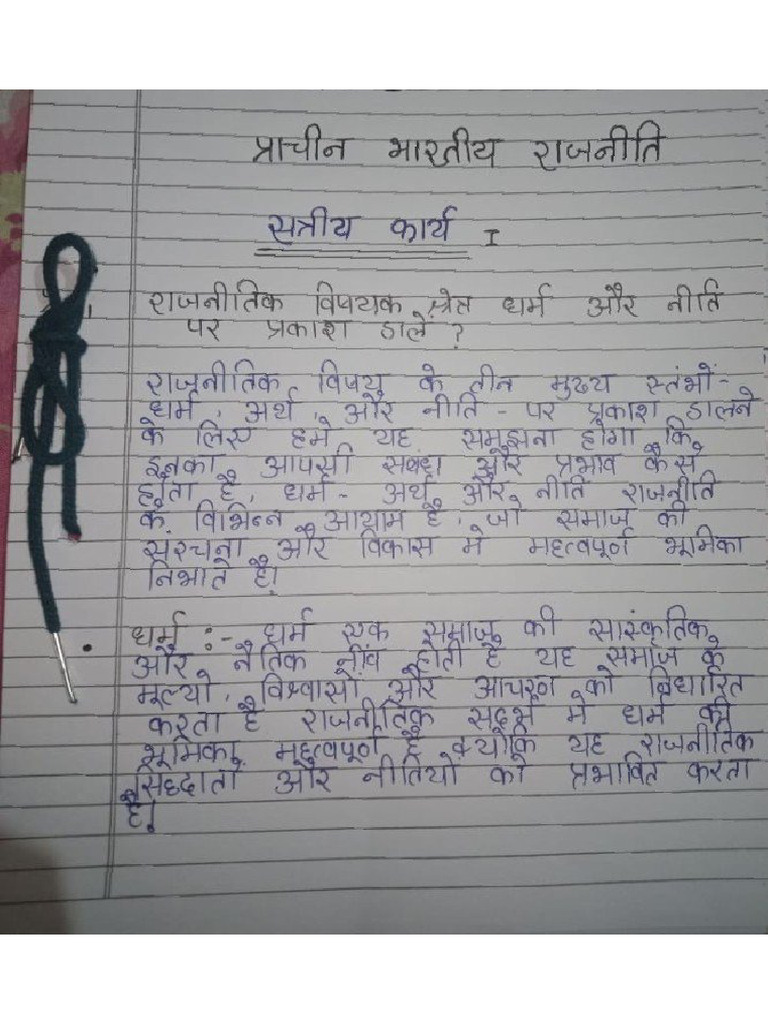 प्राचीन भारतीय राजनीति
सत्रीय कार्य I
राजनीतिक विषयक स्त्रेत धर्म और नीति
पर प्रकाश डालें ?
राजनीतिक विषय के तीन मुख्य स्तंभों-
धर्म, अर्थ, और नीति - पर प्रकाश डालने
के लिए हमे यह समझना होगा कि
इनका आपसी सबंध और प्रभाव कैसे
होता है, धर्म - अर्थ और नीति राजनीति
के विभिन्न आयाम है, जो समाज की
सरंचना और विकास मे महत्वपूर्ण भूमिका
निभाते है।
धर्म :- धर्म एक समाज की सांस्कृतिक
और नैतिक नींव होती है यह समाज के
मूल्यो, विश्वासो और आचरण को निर्धारित
करता है राजनीतिक सदर्भ मे धर्म की
भूमिका महत्वपूर्ण है क्योकि यह राजनीतिक
सिद्दातो और नीतियो को प्रभावित करता
है।